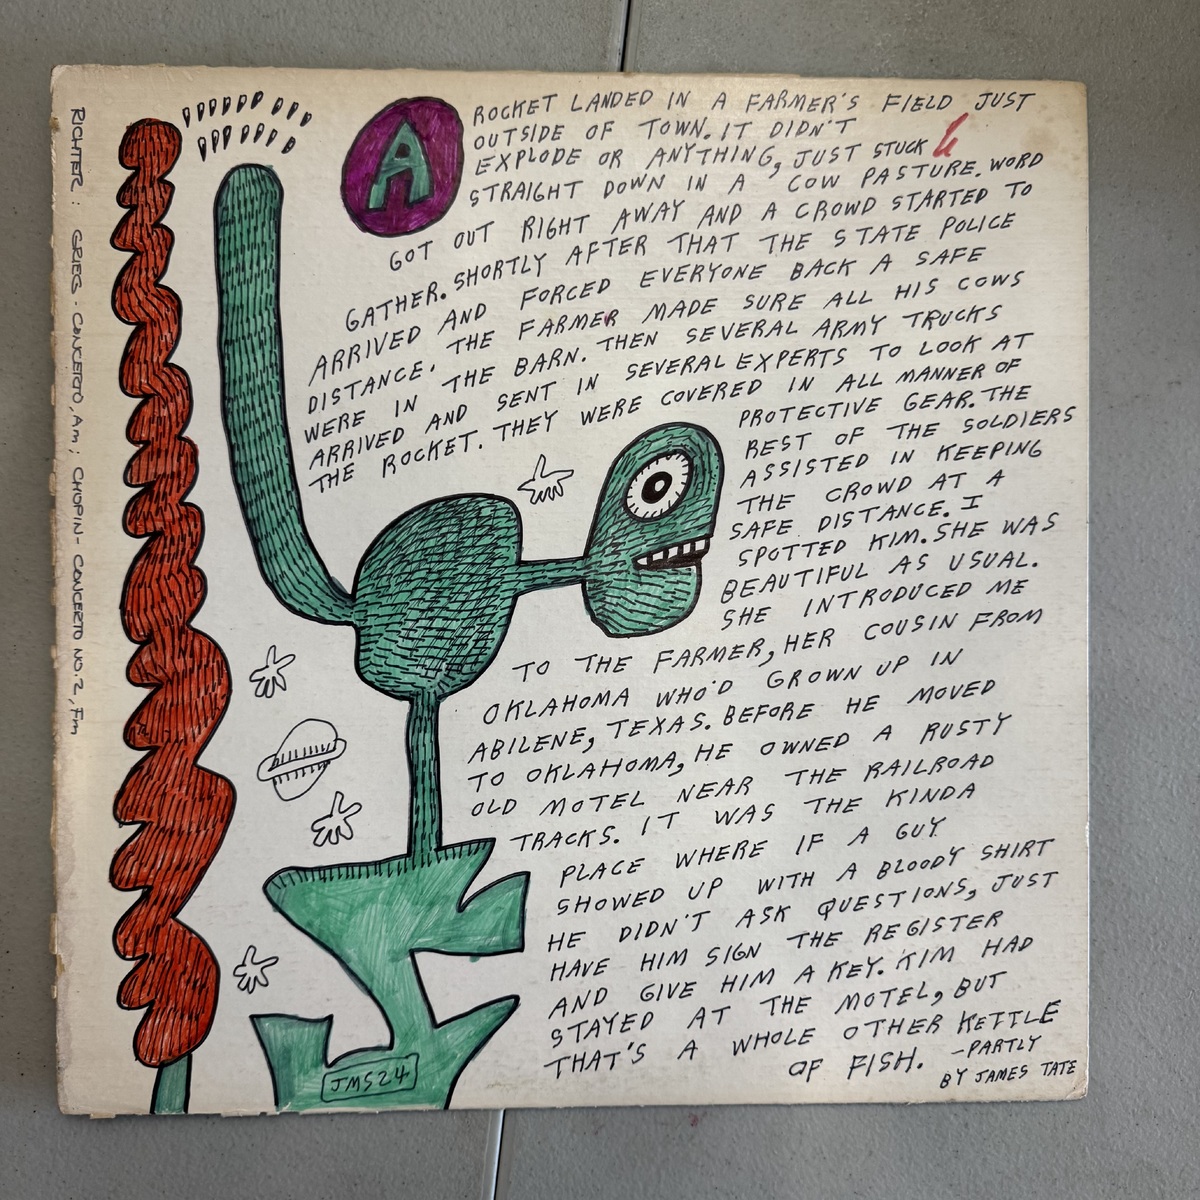 RICHTER: GRIEG - CONCERTO, Am; CHOPIN - CONCERTO NO. 2, Fm
A ROCKET LANDED IN A FARMER'S FIELD JUST
OUTSIDE OF TOWN. IT DIDN'T
EXPLODE OR ANYTHING, JUST STUCK
STRAIGHT DOWN IN A COW PASTURE. WORD
GOT OUT RIGHT AWAY AND A CROWD STARTED TO
GATHER. SHORTLY AFTER THAT THE STATE POLICE
ARRIVED AND FORCED EVERYONE BACK A SAFE
DISTANCE. THE FARMER MADE SURE ALL HIS COWS
WERE IN THE BARN. THEN SEVERAL ARMY TRUCKS
ARRIVED AND SENT IN SEVERAL EXPERTS TO LOOK AT
THE ROCKET. THEY WERE COVERED IN ALL MANNER OF
PROTECTIVE GEAR. THE
REST OF THE SOLDIERS
ASSISTED IN KEEPING
THE CROWD AT A
SAFE DISTANCE. I
SPOTTED KIM. SHE WAS
BEAUTIFUL AS USUAL.
SHE INTRODUCED ME
TO THE FARMER, HER COUSIN FROM
OKLAHOMA WHO'D GROWN UP IN
ABILENE, TEXAS. BEFORE HE MOVED
TO OKLAHOMA, HE OWNED A RUSTY
OLD MOTEL NEAR THE RAILROAD
TRACKS. IT WAS THE KINDA
PLACE WHERE IF A GUY
SHOWED UP WITH A BLOODY SHIRT
HE DIDN'T ASK QUESTIONS, JUST
HAVE HIM SIGN THE REGISTER
AND GIVE HIM A KEY. KIM HAD
STAYED AT THE MOTEL, BUT
THAT'S A WHOLE OTHER KETTLE
OF FISH. -PARTLY
BY JAMES TATE
JMS24